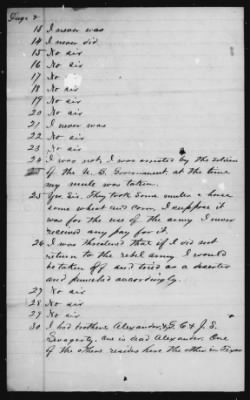 Page 2
13 I never was
14 I never did
15 No sir
16 No sir
17 No
18 No sir
19 No sir
20 No sir
21 I never was
22 No sir
23 No sir
24 I was not, I was arrested by the
of the U. S. Government at the time
my mule was taken.
25 Yes Sir. They took some mules a horse
some wheat and corn, I suppose it
was for the use of the army I never
received any pay for it.
26 I was threatened that if I did not
return to the rebel army I would
be taken off and tried as a deserter
and punished accordingly.
27 No sir
28 No sir
29 No sir
30 I had brothers Alexander, & J. S.
one is dead Alexander. One
of the others resides here the other in Texas